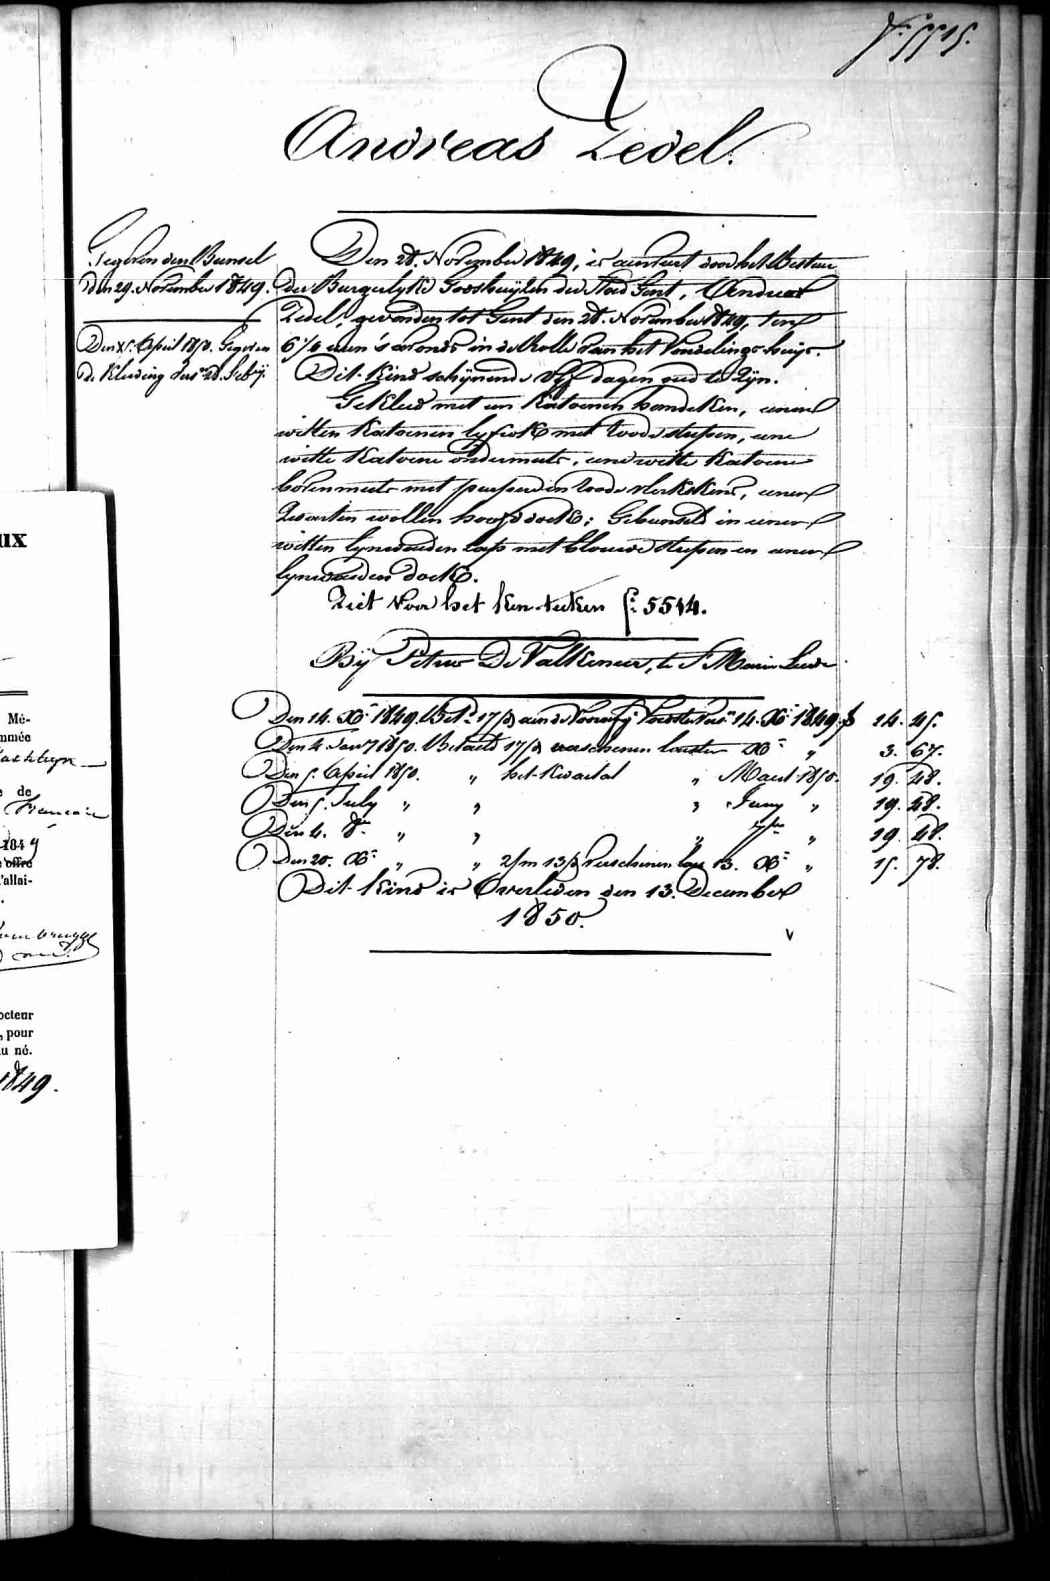 f.° 5515.
Andreas Zedel.
Gegeven den Bunsel
den 29. November 1849.
Den 15. April 1850. Gegeven
de Kleeding
Den 28. November 1849, is aenveert door het Bestuer
der Burgerlyke Godshuyzen der Stad Gent, Andreas
Zedel, gevonden tot Gent den 28. November 1849, ten
6 1/2 uren 's avonds in de Rolle van het Vondelings huys.
Dit kind schynende vyf dagen oud te zyn.
Gekleed met een katoenen hemdeken, eenen
witten katoenen lyfrok met roode streepen, eene
witte katoene ondermuts, eene witte katoene
bovenmuts met purpere en roode vlekskens, eenen
zwarten wollen hoofddoek; Gebunseld in eenen
witten lynwaeden lap met blauwe streepen en eenen
lynwaeden doek.
Ziet voor het ken-teeken f.° 5514.
By Petrus De Valkeneer, te S.t Maria Leerne
Den 14. X.e 1849. Bet.d 17/d aen de 14. X.e 1849. f 14. 25.
Den 4. Jan.y 1850. Betaeld 17/d verschenen X.e " 3. 67.
Den 5. April 1850. " het kwartael " Maert 1850. 19. 28.
Den 5. July " " " Juny " 19. 28.
Den 4. 8.re " " " 7.bre " 19. 28.
Den 20. X.e " " 2/m 13/d verschenen 13. X.e " 15. 78.
Dit kind is Overleden den 13. December
1850.
v
ux
Mé-
mmée
de
Francoise
1849
offre
'allai-
.
octeur
, pour
u né.
1849.